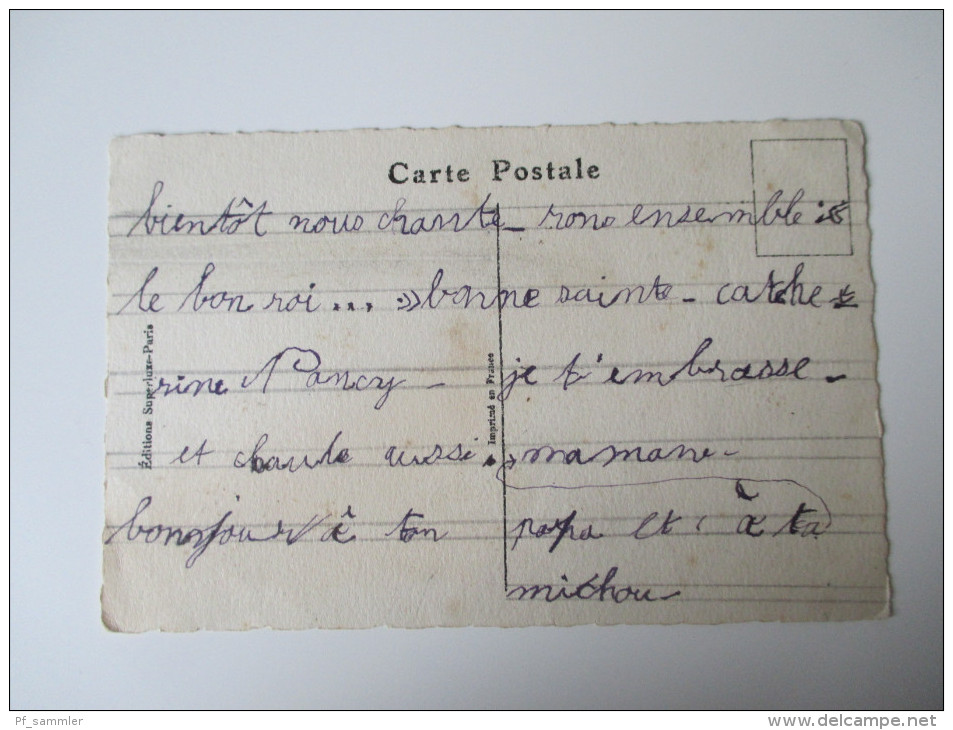 Carte Postale
bientôt nous chante_ rons ensemble :«
le bon roi... » bonne sainte - cathe
rine Nancy - je t'embrasse -
et claude aussi. maman -
bonjour à ton papa et à ta
michou -
Éditions Superluxe-Paris
Imprimé en France
Pf_sammler
http://www.delcampe.net